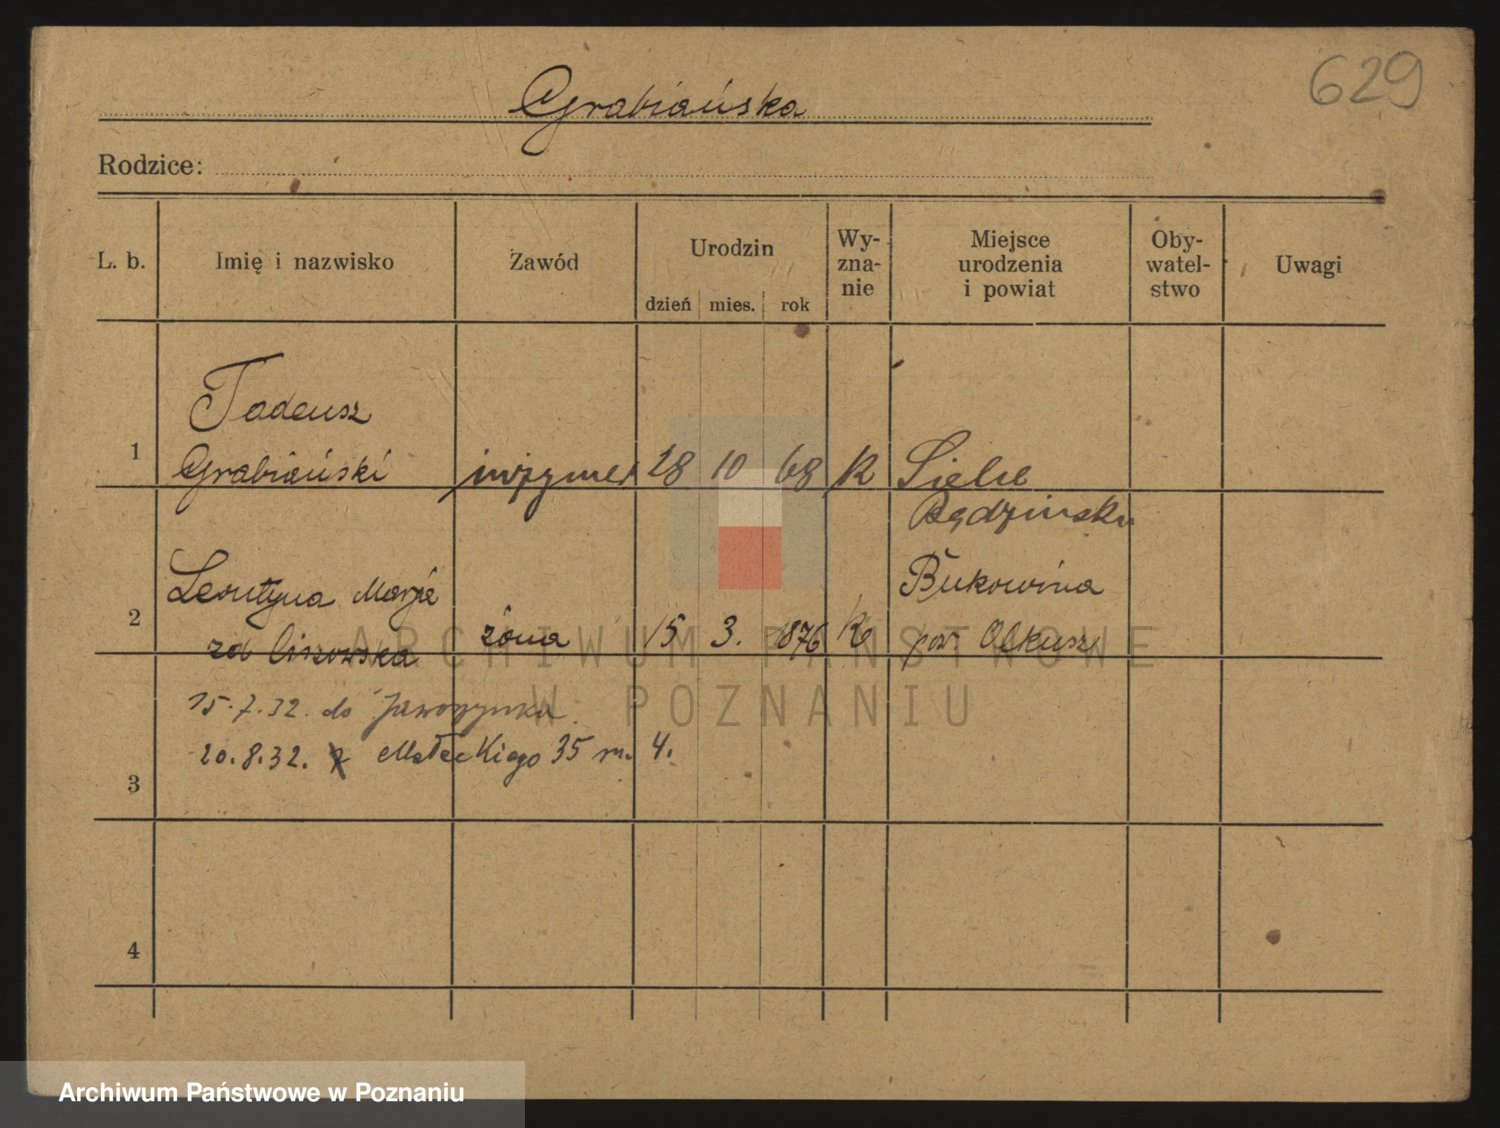 629
Grabiańska
Rodzice:
L. b. Imię i nazwisko Zawód Urodzin dzień mies. rok Wy-zna-nie Miejsce urodzenia i powiat Oby-watel-stwo Uwagi
Tadeusz
1 Grabiański inżynier 28 10 68 R Sielce
Będziński
Leontyna Marja Bukowina
2 żona 15 3. 1876 R pow. Olkusz
zd Ciszowska
15.7.32. do Jaworzynka.
20.8.32. z Małeckiego 35 m. 4.
3
4
ARCHIWUM PAŃSTWOWE
W POZNANIU
Archiwum Państwowe w Poznaniu